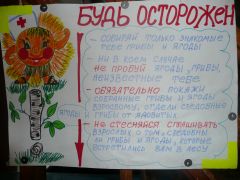 БУДЬ ОСТОРОЖЕН
- СОБИРАЙ ТОЛЬКО ЗНАКОМЫЕ
ТЕБЕ ГРИБЫ И ЯГОДЫ
- НИ В КОЕМ СЛУЧАЕ
НЕ ПРОБУЙ ЯГОДЫ, ГРИБЫ,
НЕИЗВЕСТНЫЕ ТЕБЕ
- ОБЯЗАТЕЛЬНО ПОКАЖИ
СОБРАННЫЕ ГРИБЫ И ЯГОДЫ
ВЗРОСЛОМУ, ОТДЕЛИ СЪЕДОБНЫЕ
ГРИБЫ ОТ ЯДОВИТЫХ
- НЕ СТЕСНЯЙСЯ СПРАШИВАТЬ
ВЗРОСЛЫХ О ТОМ, СЪЕДОБНЫ
ЛИ ГРИБЫ И ЯГОДЫ, КОТОРЫЕ
ВСТРЕТИЛИСЬ ВАМ В ЛЕСУ
ЯГОДЫ